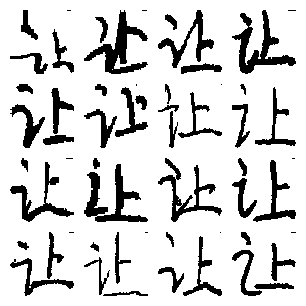 让让让让
让让让让
让让让让
让让让让